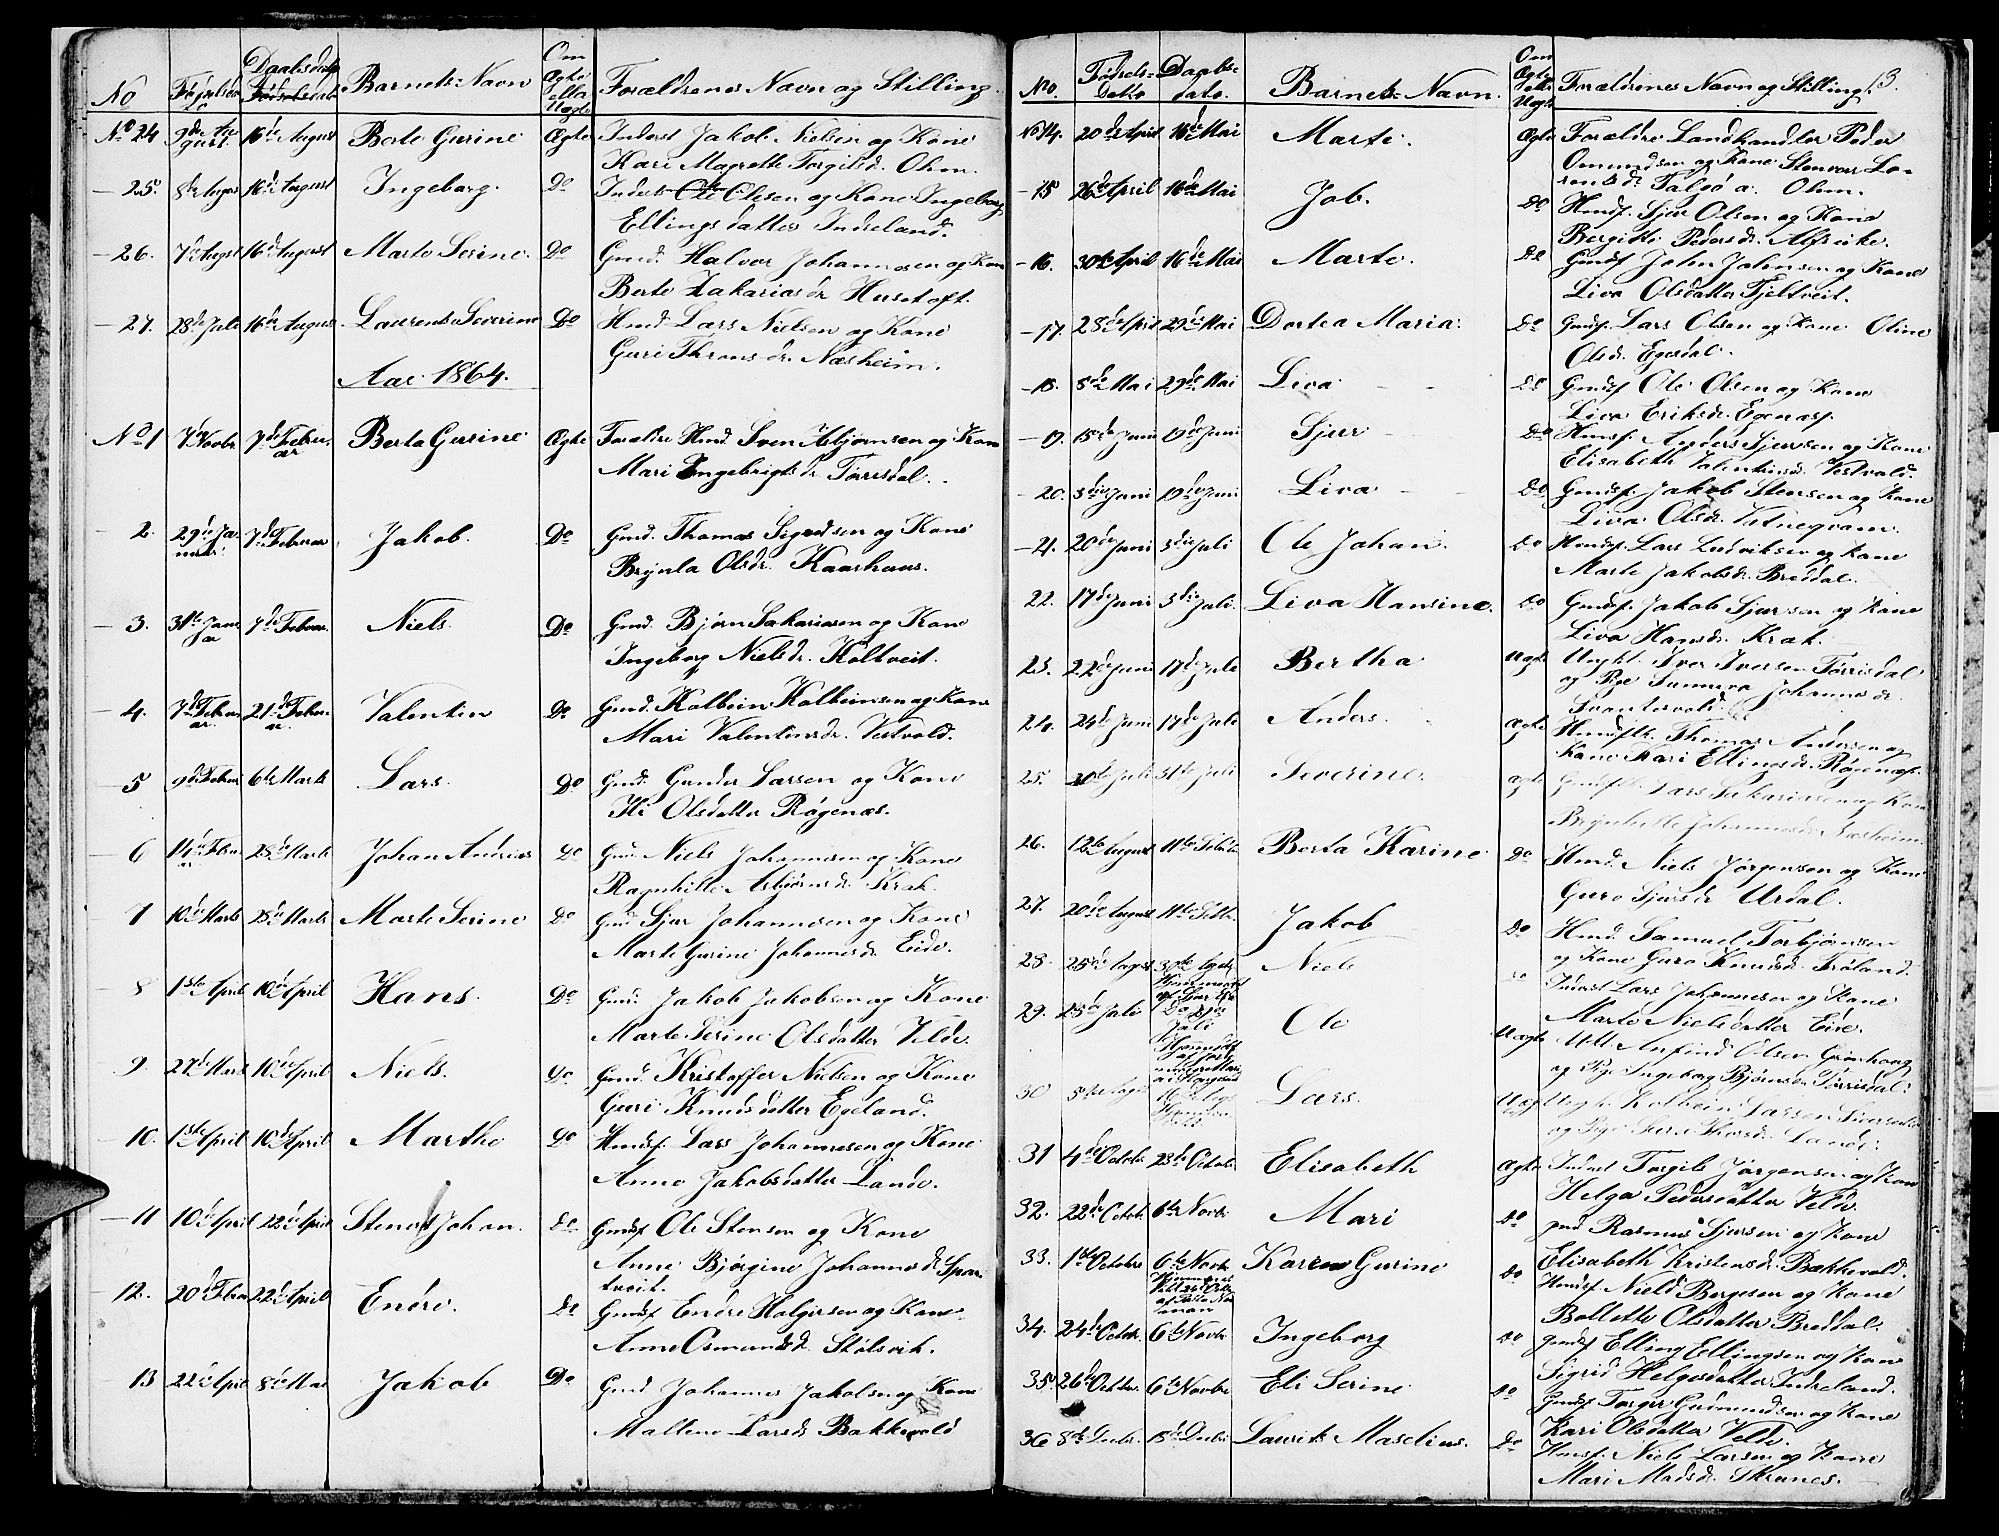 No Fødselsdato Daabsdato Barnets Navn Om Ægte eller Uægte Forældrenes Navn og Stilling.
No 24 9de August 16de August Berte Gurine Ægte Inderst Jakob Nielsen og Kone
Kari Magrette Torgilsdr. Ohm.
25. 8de August 16de August Ingeborg. Do Inderst Ole Olesen og Kone Ingeborg
Ellingsdatter Indreland.
26. 7de August 16de August Marte Serine. Do Gmd. Halvor Johannesen og Kone
Berte Zakariasdr Husetoft.
27. 28de Juli 16de August Laurents Severine Do Hmd. Lars Nielsen og Kone
Guri Thronsdr. Næsheim.
Aar 1864.
No 1 7de Februar Berta Gurine Ægte Forældre Hmd. Sven Asbjørnsen og Kone
Mari Ingebrigtsdr. Tørrisdal.
2. 29de Januar 7de Februar Jakob. Do Gmd. Thomas og Kone
Brynla Olsdr. Kaarhuus.
3. 31te Januar 7de Februar Niels. Do Gmd. Bjørn Sakariasen og Kone
Ingeborg Nielsdr. Koltveit.
4. 7de Februar 21de Februar Valentin Do Gmd. Kolbein Kolbeinsen og Kone
Mari Valentinsdr. Vestvold.
5 9de Februar 6te Marts Lars. Do Gmd. Gunder Larsen og Kone
Olsdatter Røgenæs.
6 14de Februar 28de Marts Johan Andreas Do Gmd. Niels Johannesen og Kone
Ragnhilde Asbjørnsdr. Krak.
7 10de Marts 28de Marts Marte Serine Do Gmd. Sjur Johannesen og Kone
Marte Gurine Johannesdr. Eide.
8 1ste April 10de April Hans. Do Gmd. Jakob Jakobsen og Kone
Marte Serine Olsdatter Velde.
9. 27de Marts 10de April Niels. Do Gmd. Kristoffer Nielsen og Kone
Guri Knudsdatter Egeland.
10. 1ste April 10de April Marthe Do Hmdf. Lars Johannesen og Kone
Anne Jakobsdatter Lande.
11 10de April 22de April Johan. Do Gmdf Ole Stensen og Kone
Anne Bjørgine Johannesdr Spar-
tveit.
12. 20de Febr 22de April Endre. Do Gmdf Endre Holgersen og Kone
Anne Osmundsdr. Stølsvik.
13 22de April 8de Mai Jakob Do Gmd Johannes Jakobsen og Kone
Malene Larsdr Bakkevold
No. Fødsels-Dato Daabs-dato. Barnets Navn. Om Ægte eller Uægte Forældrenes Navn og Stilling. 3.
No 14. 20de April 16de Mai Marte. Ægte Forældre Landhandler Peder
Omundsen og Kone Stenvor Lo-
rentsdr Talgø a. Ohm.
15 26de April 16de Mai Job. Do Hmdf. Sjur Olsen og Kone
Bergitte Pedersdr. Alfvike.
16. 30te April 16de Mai Marte. Do Gmdf John Johnsen og Kone
Liva Olsdatter Tjeltveit.
17. 28de April 29de Mai Dortea Maria. Do Gmdf. Lars Olsen og Kone Oline
Olsdr. Egesdal.
18. 8de Mai 29de Mai Liva Do Gmdf Ole Olsen og Kone
Liva Eriksdr. Egenæs.
19. 15de Juni 19de Juni Sjur Do Hmdf. Anders Sjursen og Kone
Elisabeth Valentinsdr. Vestvold.
20. 3die Juni 19de Juni Liva Do Gmdf. Jakob Stensen og Kone
Liva Olsdr. Vatneqvam.
21. 20de Juni 3die Juli Ole Johan. Do Hmdf. Lars Ludviksen og Kone
Marte Jakobsdr. Breddal.
22. 17de Juni 3die Juli. Liva Hansine. Do Gmdf. Jakob Sjursen og Kone
Liva Hansdr. Krak.
23. 22de Juni 17de Juli Bertha Uægte Ungkl. Iver Iversen Tørrisdal
og Pige Sunneva Johannesdr
Svantesvold.
24. 24de Juni 17de Juli Anders. Ægte Hmdf. Thomas Andersen og
Kone Kari Ellingsdr. Røgenæs.
25. 31te Juli Severine. Ægte Gmdf. Lars Sakariasen og Kone
Brynhilde Johannesdr. Næsheim.
26. 12te August 11te Berta Karine Do Hmd. Niels Jørgensen og Kone
Guro Sjursdr Urdal.
27. 20de August 11te Jakob Do Hmd. Samuel Torbjørnsen
og Kone Guro Knudsdr. Frøland.
28. 25de August Niels Do Inderst Lars Johannesen og Kone
Marte Nielsdatter Eide.
29. 25de Juli Ole Uægte Anfind Olsen Grønhoug
og Pige Ingeborg Bjørnsdr Tørrisdal.
30 5te August Lars. Uægte Ungk. Kolbein Larsen
og Pige
31 4de Octobr 23de Octobr Elisabeth Ægte Inderst Torgils Jørgensen og Kone
Helga Pedersdatter Velde.
32. 22de Octob. 6te Novbr Mari Do Gmd Rasmus Sjursen og Kone
Elisabeth Kristensdr. Bakkevold.
33. 1ste Octobr 6te Novbr Karen Gurine Do Hmdf. Niels Bergesen og Kone
Bollette Olsdatter Breddal.
34. 24de Octobr. 6te Novbr Ingeborg Do Gmdf Elling Ellingsen og Kone
Sigrid Helgesdatter Indreland.
35. 26de Octbr. 6te Novbr Eli Serine Do Gmdf Torger Gudmundsen og Kone
Kari Olsdatter Velde.
36 8de Decbr. 18de Decbr Laurits Maselius. Do Hmdf. Niels Larsen og Kone
Mari Madsdr Skrunes.